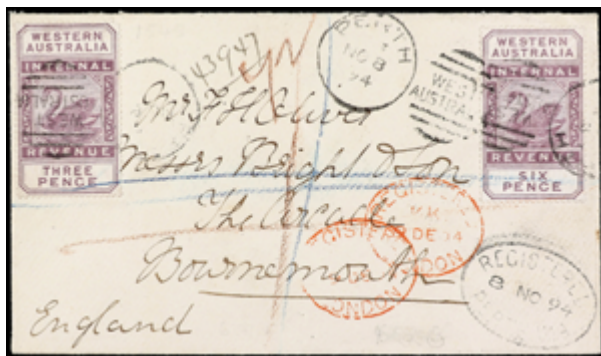 WESTERN
AUSTRALIA
INTERNAL
REVENUE
THREE
PENCE
43947
PERTH
1
NO 8
94
WEST
AUSTRA
WESTERN
AUSTRALIA
INTERNAL
REVENUE
SIX
PENCE
Messrs Bright & Son
The Arcade
Bournemouth
England
REGISTERED
LONDON
DE 14
LONDON
REGISTERED
8 NO 94